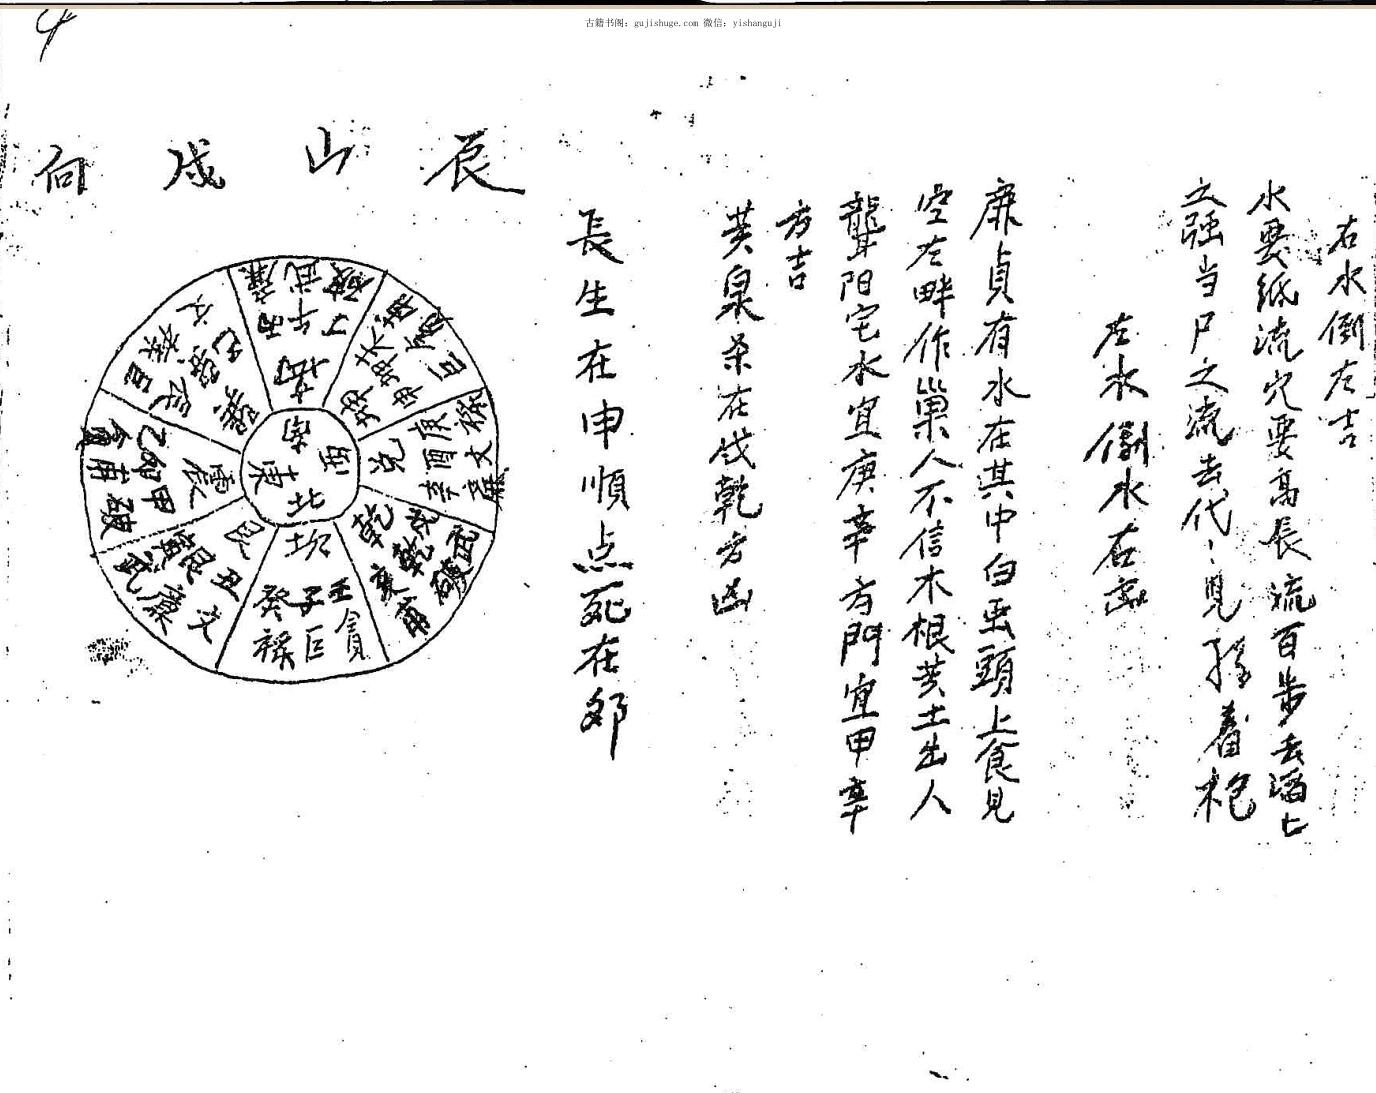 古籍书阁：gujishuge.com 微信：yishanguji
右水倒左吉
水要紙流穴要高長流百步去滔七
之強当尸之流去代〻見孫着袍
左水倒水右凶
廉貞有水在其中白虫頭上食見
空左畔作巢人不信木根黄土出人
聾阳宅水宜庚辛方門宜甲辛
方吉
黄泉杀在戌乾方凶
長生在申順点死在卯
辰山戌向
南
西
北
東
離
丙午丁
廉武破
坤
未坤申
巨
兌
庚酉辛
祿文廉
乾
戌乾亥
武破
坎
壬子癸
貪巨祿
艮
丑艮寅
文廉武
震
甲卯乙
破 貪
巽
巳
巨祿文